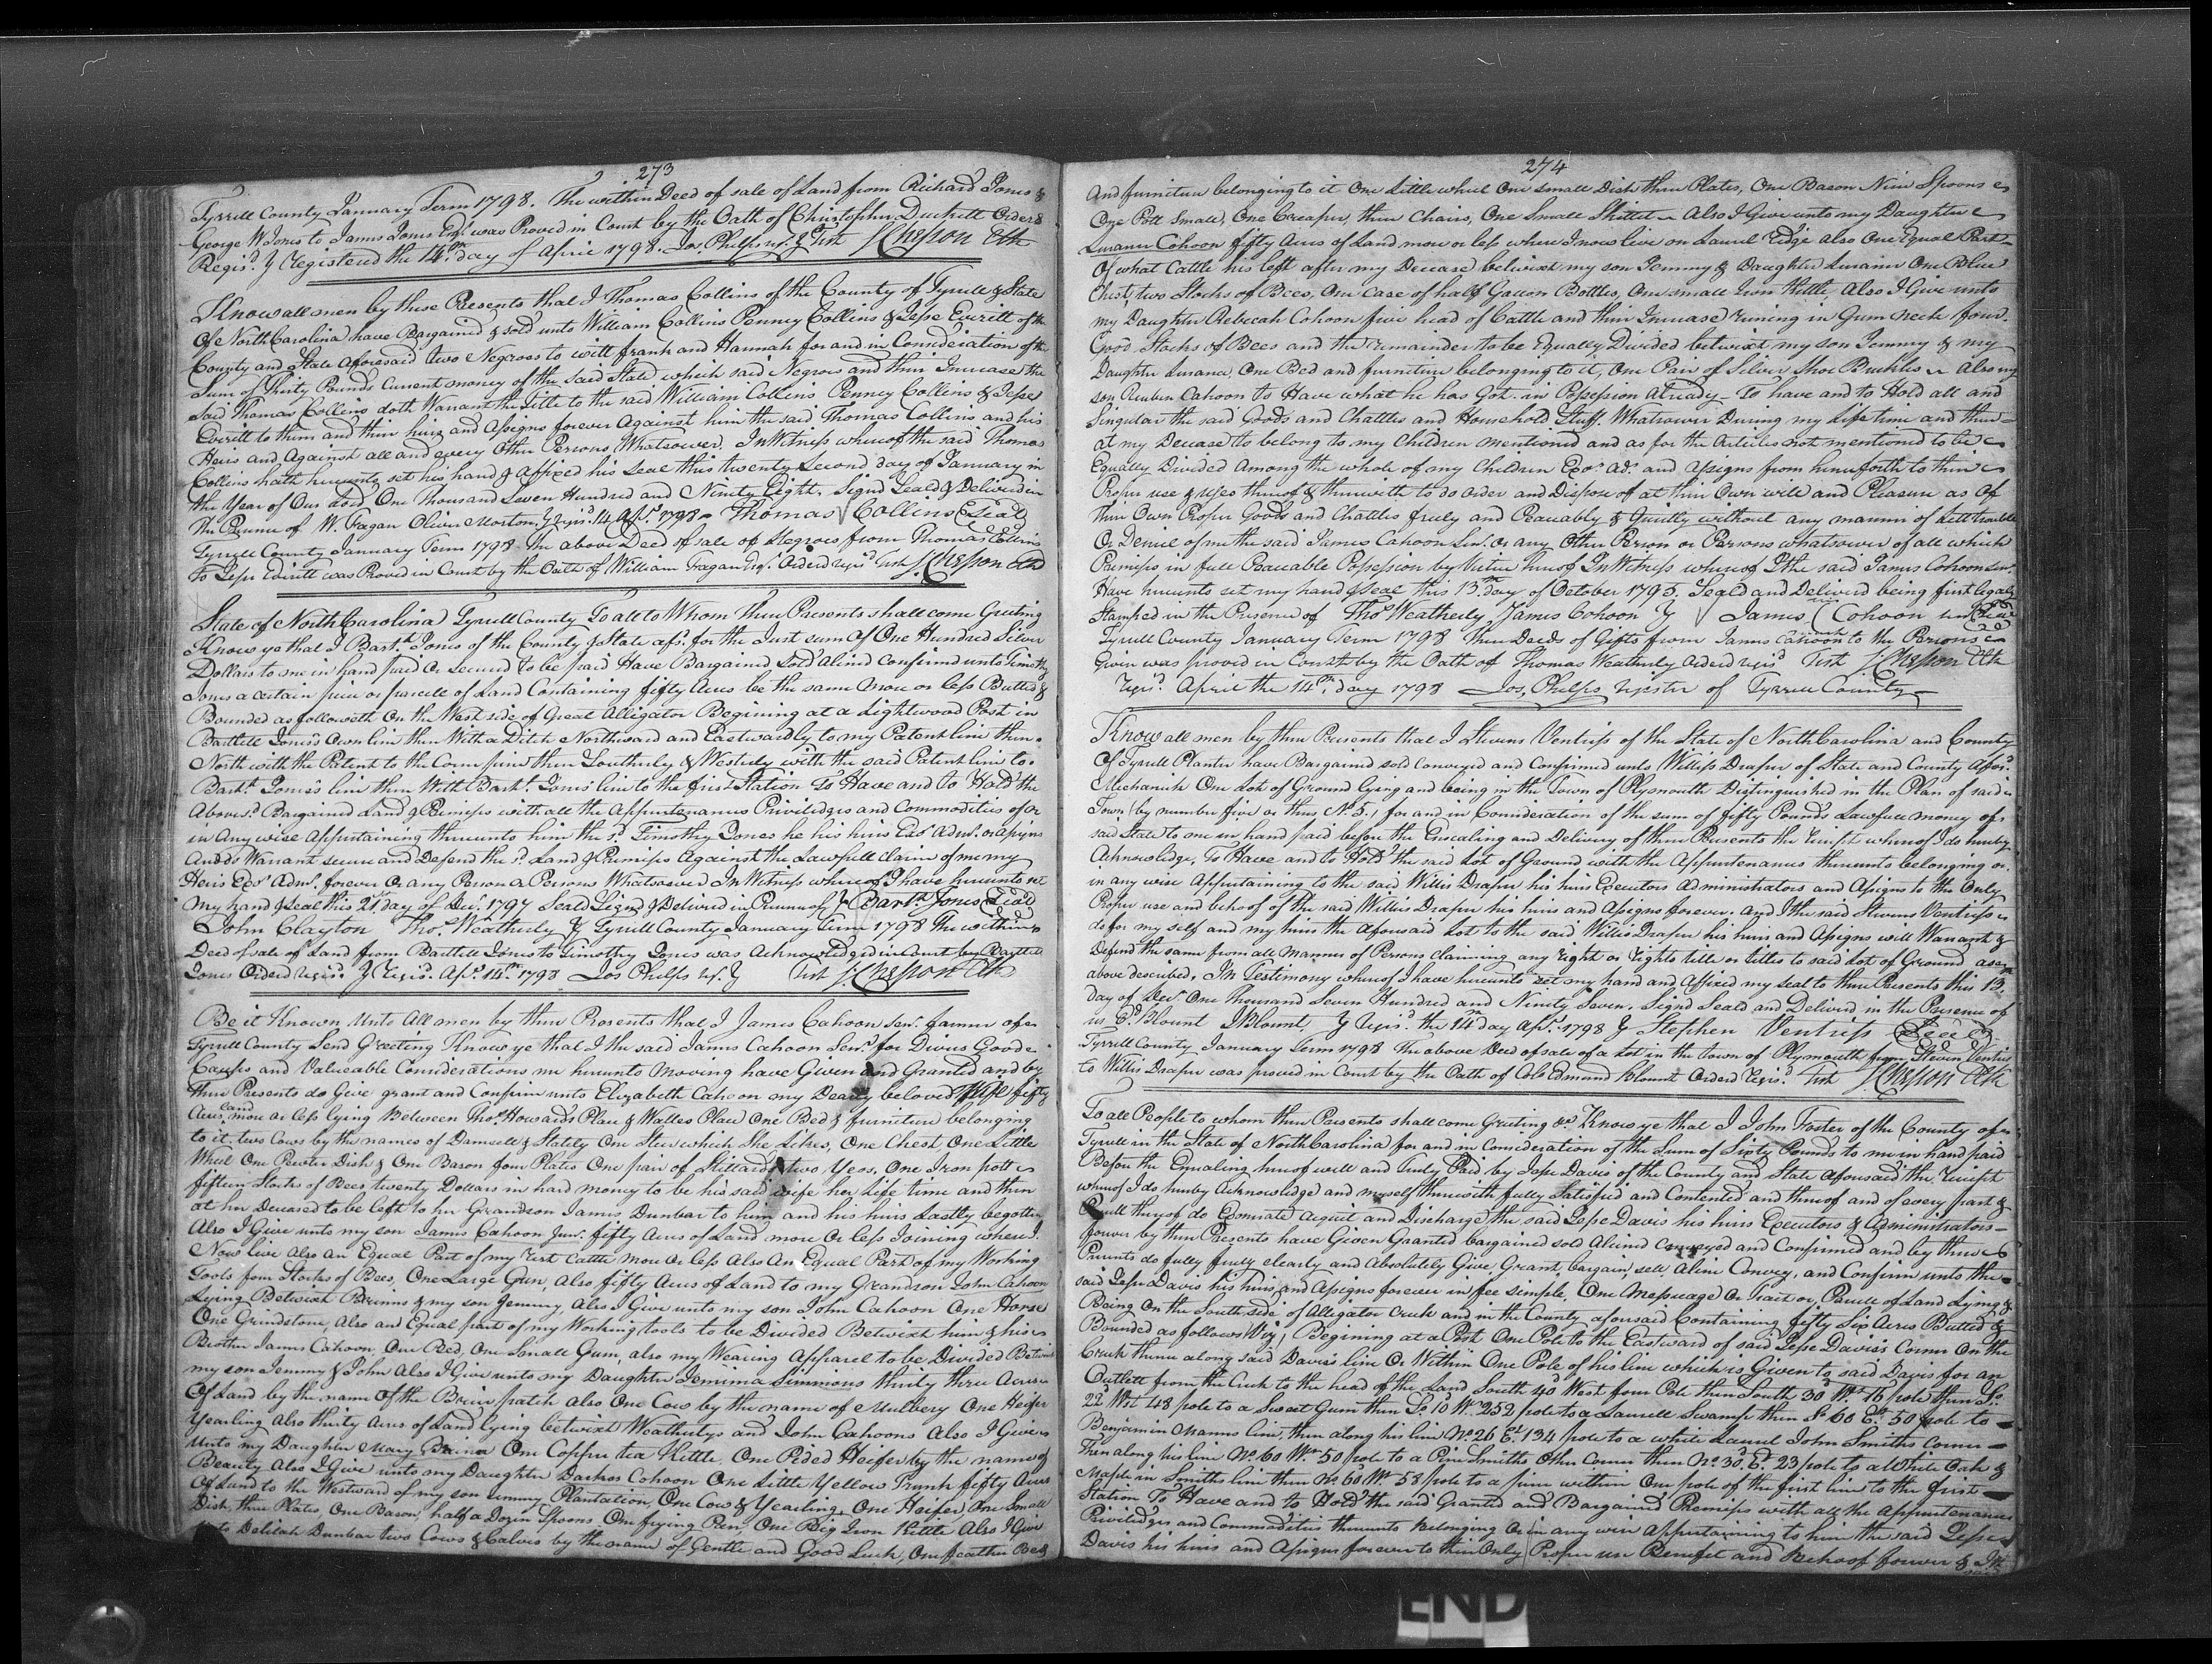 273
Tyrrell County January Term 1798. The within Deed of sale of Land from Richard Jones &
George W Jones to James Jones Esqr. was Proved in Court by the Oath of Christopher Duckett Orderd
Regisd. } Registered the 14th. day of April 1798. Jos. Phelps } Test J Chesson Clk
Know all men by these Presents that I Thomas Collins of the County of Tyrrell & State
Of North Carolina have Bargained & sold unto William Collins Penney Collins & Jesse Everitt of the
County and State Aforesaid two Negroes to witt frank and Hannah for and in Consideration of the
Sum of Thirty Pounds Current money of the said State which said Negroes and their Increase the
said Thomas Collins doth Warrant the Title to the said William Collins Penney Collins & Jesse
Everitt to them and their heirs and Assigns forever Against him the said Thomas Collins and his
Heirs and Against all and every Other Persons Whatsoever. In Witness whereof the said Thomas
Collins hath hereunto set his hand & Affixed his Seal this twenty Second day of January in
the Year of Our Lord One Thousand Seven Hundred and Ninety Eight. Signd Seald & Deliverd in
the Presence of W. Fagan Oliver Morton } Regisd. 14 Apl. 1798 - Thomas Collins Seal
Tyrrell County January Term 1798. The above Deed of sale of Negroes from Thomas Collins
To Jesse Everitt was Proved in Court by the Oath of William Fagan Esqr. Orderd Regisd Test J Chesson Clk
State of North Carolina Tyrrell County To all to Whom These Presents shall come Greeting
Know ye that I Bartt. Jones of the County & State afsd. for the Just sum Of One Hundred Silver
Dollars to me in hand paid Or Secured to be paid Have Bargained Sold Aliend Confirmd unto Timothy
Jones a certain piece or parcell of Land Containing fifty Acres be the same More or less Butted &
Bounded as followeth On the West side of Great Alligator Begining at a Lightwood Post in
Bartlett Jones's Own line then With a Ditch Northward and Eastwardly to my Patent line then
North with the Patent to the Corner then Southerly & Westerly with the said Patent line to
Bartt. Jones's line then With Bartt. Jones line to the first Station To Have and to Hold the
Abovesd. Bargained Land & Premises with all the Appurtenances Priviledges and Commodities of or
in Any wise Appurtaining thereunto him the sd. Timothy Jones he his heirs Exs. Adms. or Assigns
And do Warrant secure and Defend the sd. Land & Premises Against the Lawfull claim of me my
Heirs Exs Adms. forever Or any Person or Persons Whatsoever In Witness whereof I have hereunto set
my hand & Seal this 21st. day of Decr. 1797 Seald Signd & Deliverd in Presence of } Bartt Jones Seal
John Clayton Thos. Weatherly } Tyrrell County January Term 1798 The within
Deed of sale of Land from Bartlett Jones to Timothy Jones was Acknowledged in Court by Bartlett
Jones Orderd Regisd. } Regisd. Apl. 14th 1798 Jos Phelps } Test J Chesson Clk
Be it Known Unto All men by these Presents that I James Cahoon Senr. farmer of
Tyrrell County Send Greeting Know ye that I the said James Cahoon Senr. for Divers Good
Causes and Valueable Considerations me hereunto Moving have Given and Granted and by
these Presents do Give grant and Confirm unto Elizabeth Cahoon my Dearly beloved Wife fifty
Acres land more or less lying Between Thos. Howards Place & Walles Place One Bed & furniture belonging
to it, two Cows by the names of Damsell & Stately One Steer which She Likes, One Chest One Little
Wheel One Pewter Dish & One Bason four Plates One pair of Stillards two Yeos, One Iron pott
fifteen Stocks of Bees twenty Dollars in hard money to be his said wife her Life time and then
at her Deceased to be left to her Grandson James Dunbar to him and his heirs Lastly begotten
Also I Give unto my son James Cahoon Junr. fifty Acres of Land more Or less Joining where I
Now live Also An Equal Part of my Rest Cattle more Or less Also An Equal Part of my Working
Tools four Stocks of Bees, One Large Gun, Also fifty Acres of Land to my Grandson John Cahoon
Lying Betwixt & my son Jemmy, Also I Give unto my son John Cahoon One Horse
One Grindstone, Also and Equal part of my Working tools to be Divided Betwixt him & his
Brother James Cahoon, One Bed, One Small Gun, also my Wearing Apparel to be Divided Betwixt
my son Jemmy & John Also I Give unto my Daughter Jemima Simmons thirty three Acres
Of Land by the name Of the Brier patch Also One Cow by the name of Mulbery One Heifer
Yearling Also thirty Acres of Land lying betwixt Weatherlys and John Cahoons Also I Give
Unto my Daughter Mary One Copper tea Kettle, One Pided Heifer by the name of
Beauty Also I Give unto my Daughter Darkes Cohoon One Little Yellow Trunk fifty Acres
Of Land to the Westward of my son Jemmy Plantation, One Cow & Yearling, One Heifer, One Small
Dish, three Plates, One Bason, half a Dozin Spoons One frying Pan, One Big Iron Kettle Also I Give
unto Delilah Dunbar two Cows & Calves by the name of Gentle and Good Luck, One feather Bed
274
And furniture belonging to it One Little wheel One small Dish three Plates, One Bason Nine Spoons
One Pott Small, One Creaper, three Chairs, One Small Skillet Also I Give unto my Daughter
Luranor Cohoon fifty Acres of Land more or less where I now live on Laurel Ridge Also One Equal Part
Of what Cattle his left after my Decease betwixt my son Jemmy & Daughter Luraner One Blue
Chest, two Stocks of Bees, One Case of half Gallon Bottles, One small Iron Kettle Also I Give unto
my Daughter Rebecah Cohoon five head of Cattle and their Increase Runing in Gum Neck four
Good Stocks of Bees and the Remainder to be Equally Divided betwixt my son Jemmy & my
Daughter Luraner, One Bed and furniture belonging to it, One Pair of Silver Shoe Buckles Also my
son Reuben Cahoon to Have what he has Got in Possession Already - To have and to Hold all and
Singular the said Goods and Chattles and Household Stuff Whatsoever During my Life time and then
at my Decease to belong to my Children mentioned and as for the Articles not mentioned to be
Equally Divided Among the whole of my Children Exs. Ads. and Assigns from henceforth to their
Proper use & uses thereof & therewith to do order and Dispose of at their Own will and Pleasure as Of
Their Own Proper Goods and Chattles freely and Peaceably & Quietly without any manner of Lett trouble
Or Deniel of me the said James Cahoon Senr. Or any Other Person or Persons whatsoever of all which
Premises in full Peaceable Possession by Virtue hereof In Witness whereof I the said James Cohoon Senr.
Have hereunto set my hand & Seal this 13th day of October 1795. Seald and Deliverd being first legaly
Stamped in the Presence of Thos Weatherly James Cohoon } James Cohoon Seal
Tyrrell County January Term 1798 These Deeds of Gifts from James Cahoon to the Persons
Given was proved in Court by the Oath of Thomas Weatherly Orderd Regisd Test J Chesson Clk
Regisd. April the 14th. day 1798 Jos, Phelps Regster of Tyrrell County
Know all men by these Presents that I Stevens Ventriss of the State of North Carolina and County
Of Tyrrell Planter have Bargained sold Conveyed and Confirmed unto Williss Draper of State and County Aforsd.
Mechanick One Lot of Ground lying and being in the Town of Plymouth Distinguished in the Plan of said
Town (by number five or thus No. 5.) for and in Consideration of the sum of fifty Pounds Lawfull money of
said State to me in hand paid before the Ensealing and Delivery of these Presents the Receipt whereof I do hereby
Acknowledge, To Have and to Hold the said Lot of Ground with the Appurtenances thereunto belonging or
in any wise Appurtaining to the said Willis Draper his heirs Executors Administrators and Assigns to the Only
Proper use and behoof of the said Williss Draper his heirs and Assigns forever. And I the said Stevens Ventress
do for my self and my heirs the Aforesaid Lot to the said Willis Draper his heirs and Assigns will Warrant &
Defend the same from all Manner of Persons claiming any Right or Rights title or titles to said Lot of Ground as
above described, In Testimony whereof I have hereunto set my hand and Affixed my Seal to these Presents this 13th
Day of Decr. One Thousand Seven Hundred and Ninety Seven. Signd Seald and Deliverd in the Presence of
us Ed. Blount J Blount, } Regisd. the 14th day Apl. 1798 } Stephen Ventriss Seal
Tyrrell County January Term 1798 The above Deed of sale of a Lot in the town of Plymouth from Steven Ventris
to Willis Draper was proved in Court by the Oath of Colo Edmund Blount Orderd Regisd. Test J Chesson Clk
To all People to whom these Presents shall come Greeting &c Know ye that I John Foster of the County of
Tyrrell in the State of North Carolina for and in Consideration of the Sum of Sixty Pounds to me in hand paid
Before the Ensealing hereof well and Truly Paid by Jesse Davis of the County and State Aforesaid the Receipt
whereof I do hereby Acknowledge and myself therewith fully Satisfied and Contented and thereof and of every part &
Parcell thereof do Exonerate Acquit and Discharge the said Jesse Davis his heirs Executors & Administrators
forever by these Presents have Given Granted bargained sold Aliend Conveyed and Confirmed and by these
Presents do fully freely clearly and Absolutely Give, Grant, bargain, sell, Alien Convey, and Confirm unto the
said Jesse Davis his heirs and Assigns forever in fee simple, One Messuage Or Tract or Parcell of Land Lying &
Being On the South side of Alligator Creek and in the County aforesaid Containing fifty Six Acres Butted &
Bounded as follows (Viz) Begining at a Post One Pole to the Eastward of said Jesse Davis's Corner On the
Creek thence along said Davis's line Or Within One Pole of his line which is Given to said Davis for an
Outlett from the Creek to the head of the Land South 40 West four Pole then South 30 Wt. 16 pole then So.
22 Wst 48 pole to a Sweet Gum then So. 10 Wt. 252 pole to a Laurell Swamp then So 60 Et. 50 pole to
Benjamin Manns line, then along his line No. 26 Et. 134 pole to a white Laurel John Smiths Corner
Then along his line No. 60 Wt. 50 pole to a Pine Smiths Other Corner then No. 30 Et. 23 pole to a White Oak &
Maple in Smiths line then No. 60 Wt 58 pole to a pine within One pole of the first line to the first
Station To Have and to Hold the said Granted and Bargained Premises with all the Appurtenances
Priviledges and Commodities thereunto belonging Or in any wise Appurtaining to him the said Jesse
Davis his heirs and Assigns forever to their Only Proper use Benefit and behoof forever &
END